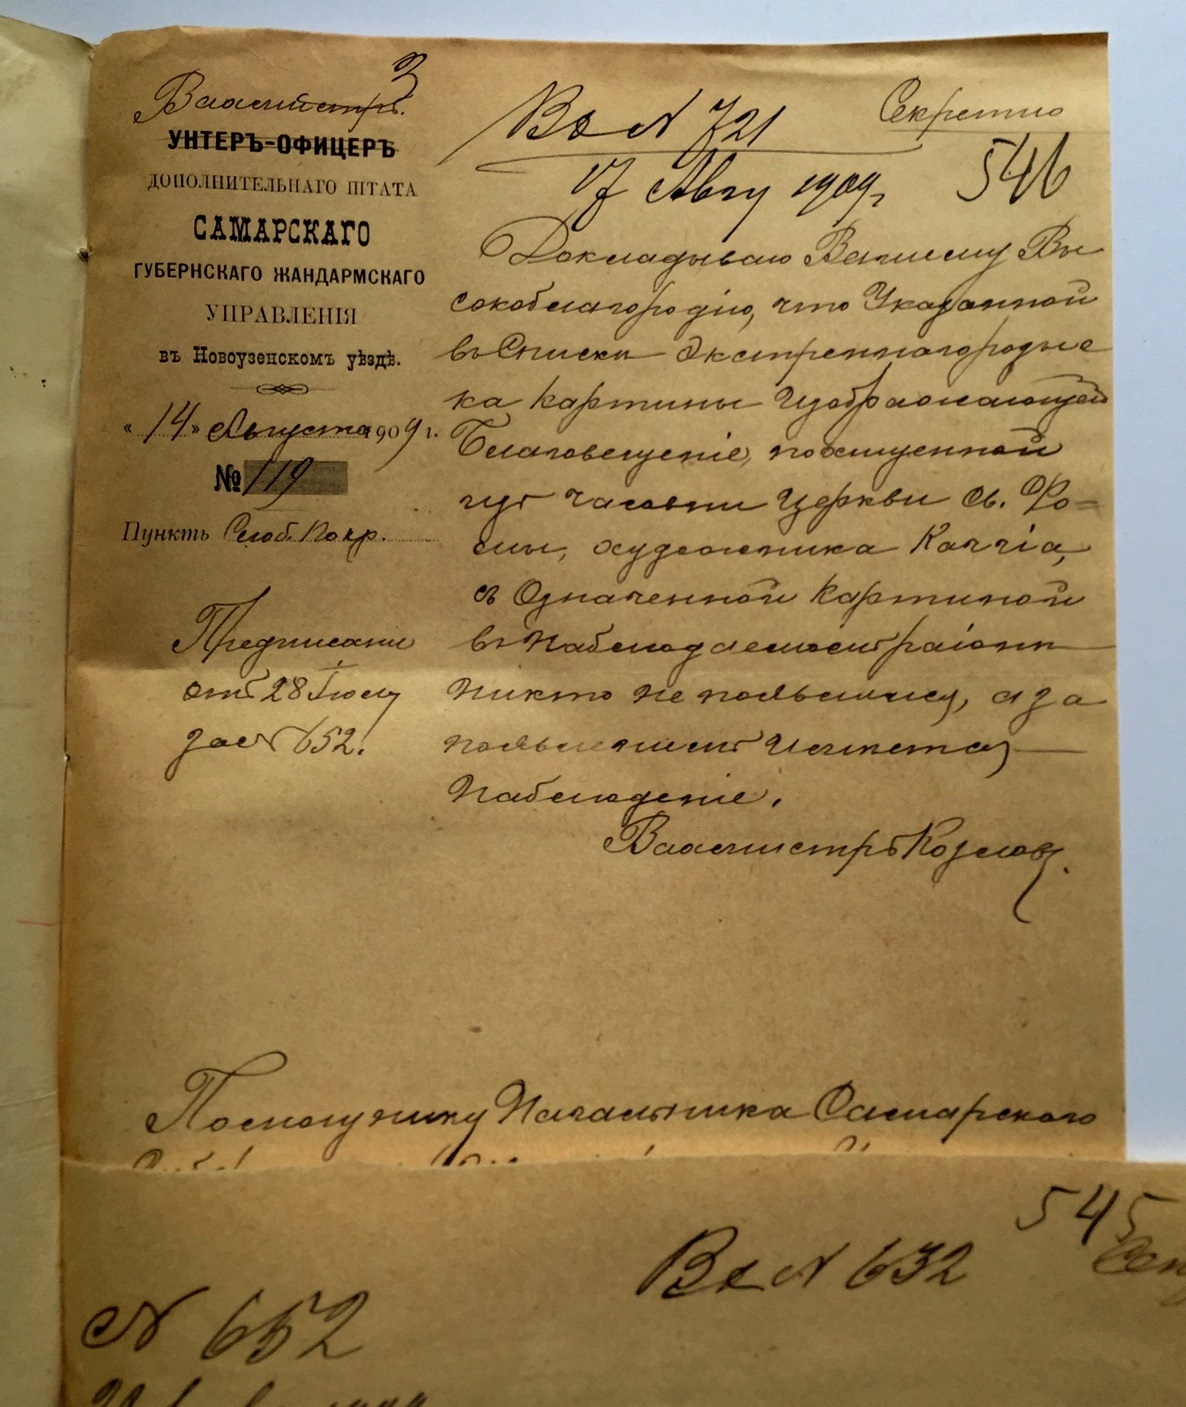 3
Вахмистръ.
УНТЕРЪ-ОФИЦЕРЪ
ДОПОЛНИТЕЛЬНАГО ШТАТА
САМАРСКАГО
ГУБЕРНСКАГО ЖАНДАРМСКАГО
УПРАВЛЕНІЯ
въ Новоузенскомъ уѣздѣ.
«14» Августа 1909 г.
№ 119
Пунктъ Слоб. Покр.
Предписание
отъ 28 Іюля
за № 652.
Вх № 721
Секретно
17 Авгу 1909 г.
546
Докладываю Вашему Вы
сокоблагородію, что Указанной
въ Списки
ка картины Изображающей
Благовещеніе, похищенной
изъ часовни Церкви Св. Фо=
мы, художника Каччіа,
съ Означенной Картиной
въ Наблюдаемомъ раіони
никто не появился, а за
появлениемъ Имеется
Наблюденіе.
Вахмистръ Козловъ.
Помощнику Начальника Самарского
545
Вх № 632
№ 652